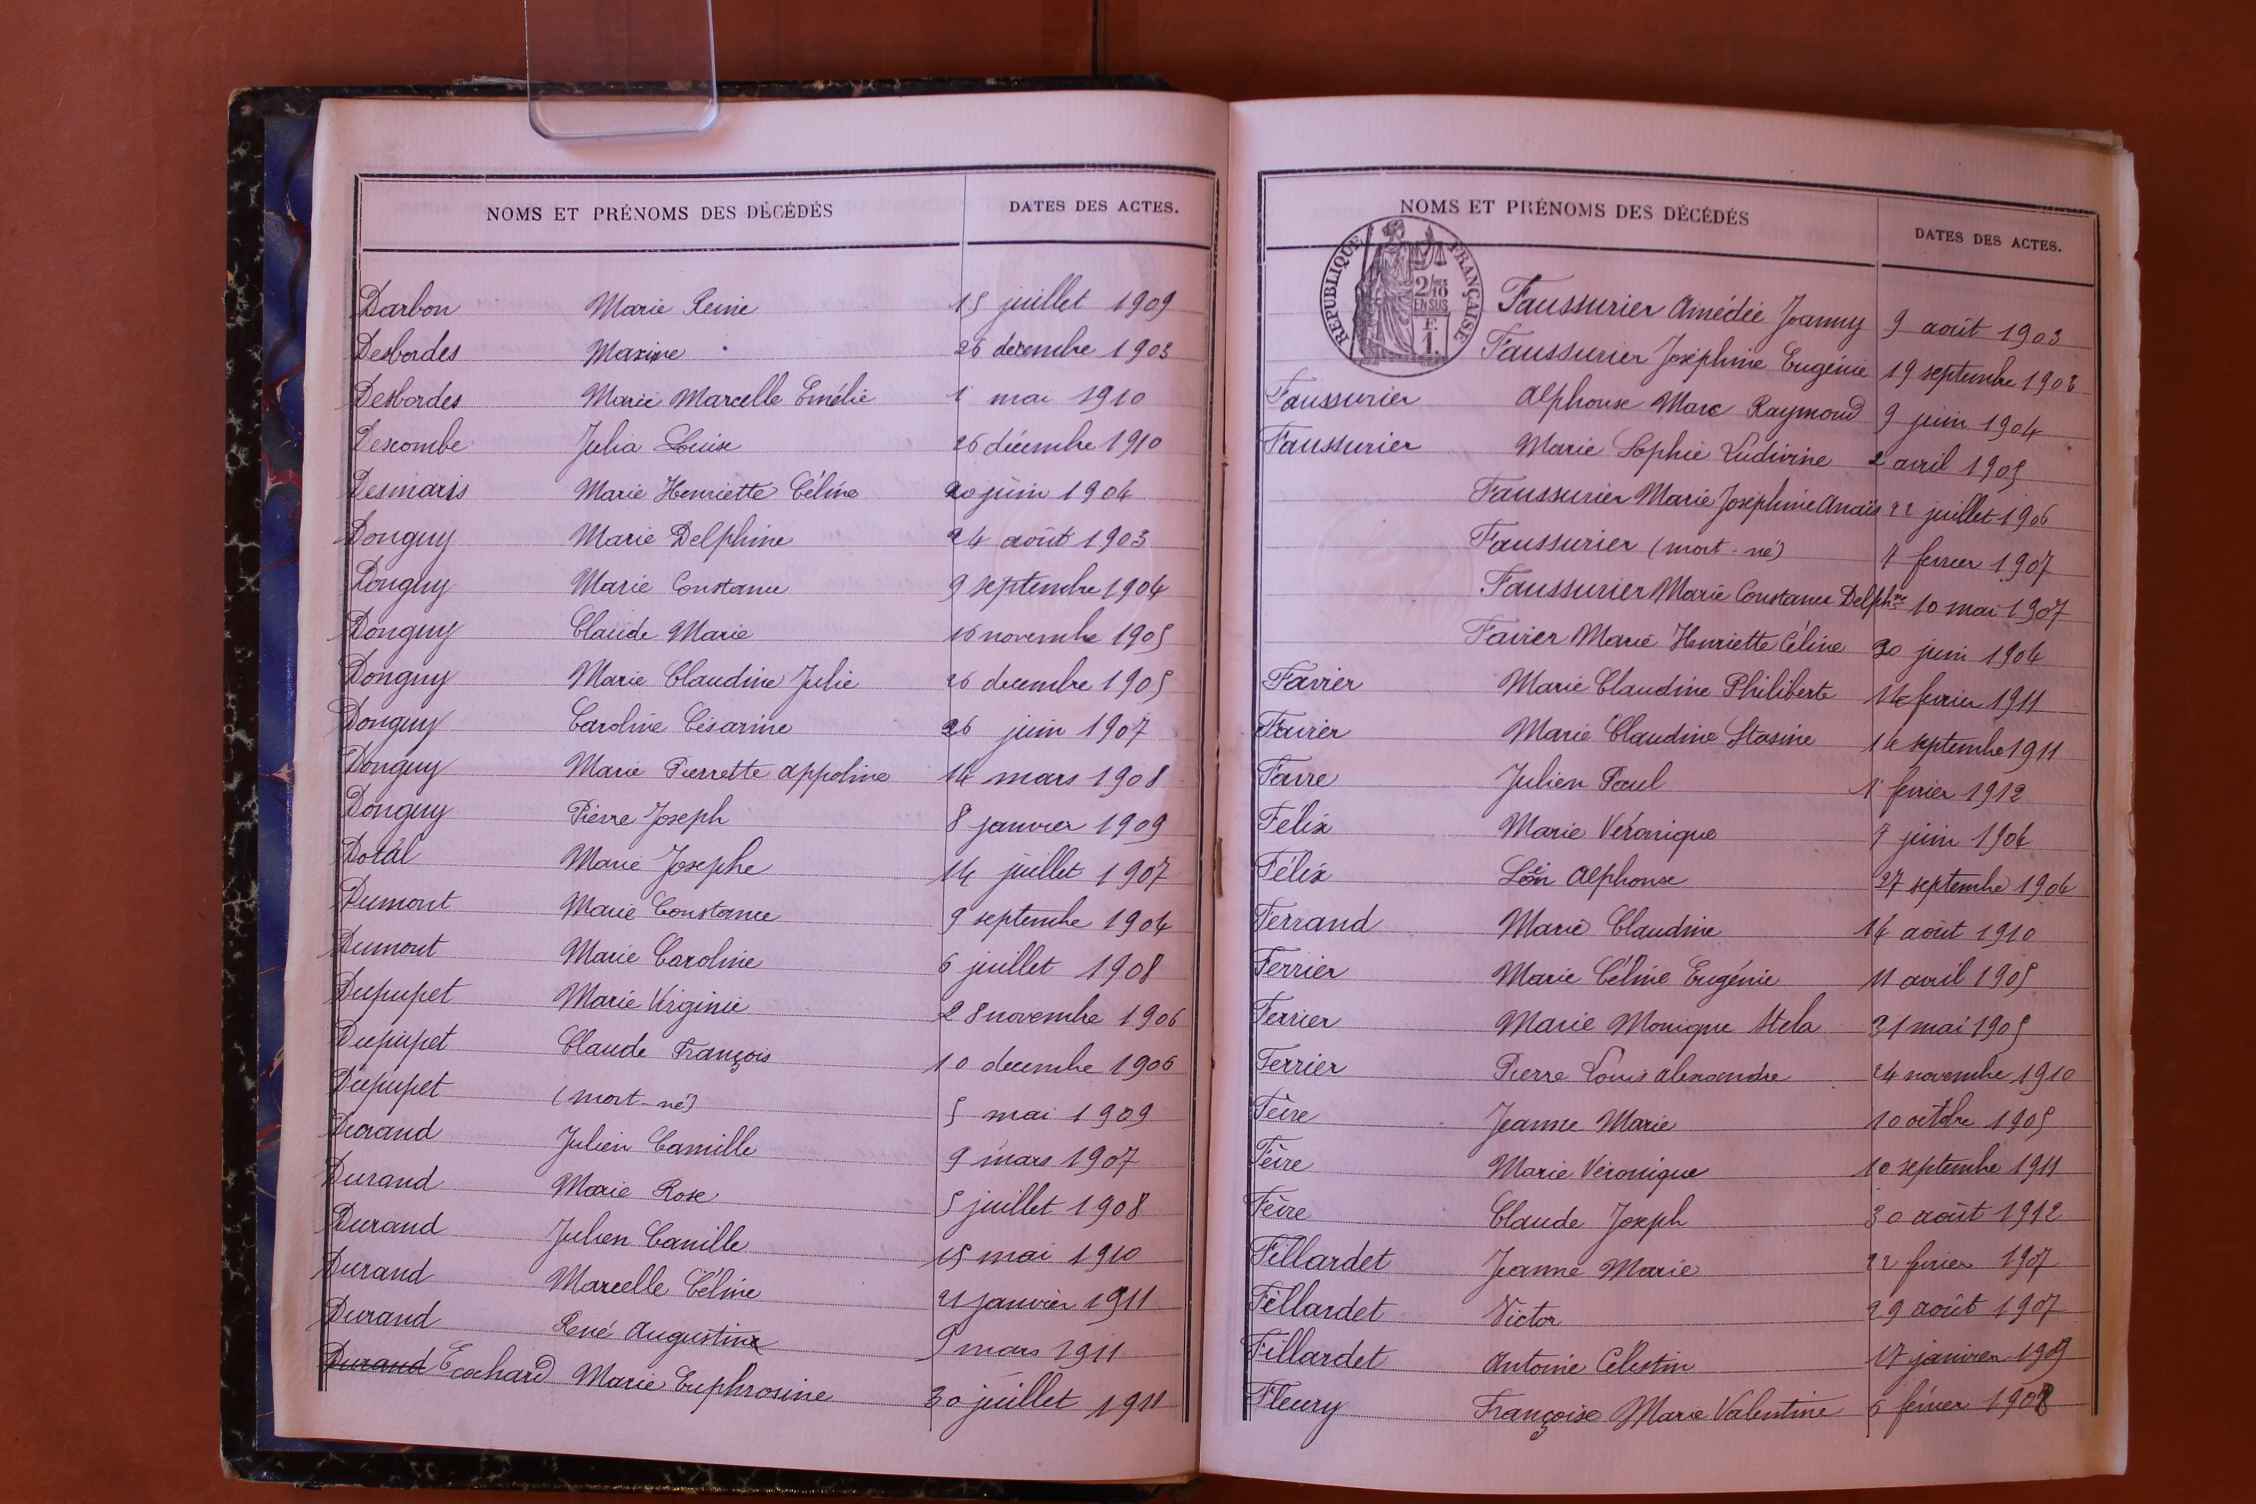 NOMS ET PRÉNOMS DES DÉCÉDÉS DATES DES ACTES.
Darbon Marie Reine 15 juillet 1909
Desbordes Maxime 26 décembre 1903
Desbordes Marie Marcelle Emélie 1 mai 1910
Descombe Julia Louise 26 décembre 1910
Desmaris Marie Henriette Céline 20 juin 1904
Donguy Marie Delphine 24 août 1903
Donguy Marie Constance 9 septembre 1904
Donguy Claude Marie 16 novembre 1905
Donguy Marie Claudine Julie 26 decembre 1905
Donguy Caroline Césarine 26 juin 1907
Donguy Marie Pierrette appoline 14 mars 1908
Donguy Pierre Joseph 8 janvier 1909
Dotal Marie Josephe 14 juillet 1907
Dumont Marie Constance 9 septembre 1904
Dumont Marie Caroline 6 juillet 1908
Dupupet Marie Virginie 28 novembre 1906
Dupupet Claude François 10 decembre 1906
Dupupet (mort-né) 5 mai 1909
Durand Julien Camille 9 mars 1907
Durand Marie Rose 5 juillet 1908
Durand Julien Camille 15 mai 1910
Durand Marcelle Céline 21 janvier 1911
Durand René Augustin 9 mars 1911
Durand Ecochard Marie Euphrosine 30 juillet 1911
NOMS ET PRÉNOMS DES DÉCÉDÉS DATES DES ACTES.
REPUBLIQUE FRANÇAISE
2/10 EN SUS
F. 1.
Faussurier Amédée Joanny 9 août 1903
Faussurier Joséphine Eugénie 19 septembre 1903
Faussurier Alphonse Marc Raymond 9 juin 1904
Faussurier Marie Sophie Ludivine 2 avril 1905
Faussurier Marie Joséphine Anaïs 22 juillet 1906
Faussurier (mort-né) 7 fevrier 1907
Faussurier Marie Constance Delphne 10 mai 1907
Favier Marie Henriette Céline 20 juin 1904
Favier Marie Claudine Philiberte 14 fevrier 1911
Favier Marie Claudine Stasine 14 septembre 1911
Favre Julien Paul 1 fevrier 1912
Félix Marie Véronique 7 juin 1904
Félix Léon Alphonse 27 septembre 1904
Ferrand Marie Claudine 14 août 1910
Ferrier Marie Céline Eugénie 11 avril 1905
Ferrier Marie Monique Stela 31 mai 1905
Ferrier Pierre Louis alexandre 24 novembre 1910
Fèvre Jeanne Marie 10 octobre 1905
Fèvre Marie Véronique 10 septembre 1911
Fèvre Claude Joseph 30 août 1912
Fillardet Jeanne Marie 22 fevrier 1907
Fillardet Victor 29 août 1907
Fillardet Antoine Célestin 17 janvier 1909
Fleury Françoise Marie Valentine 6 février 1908